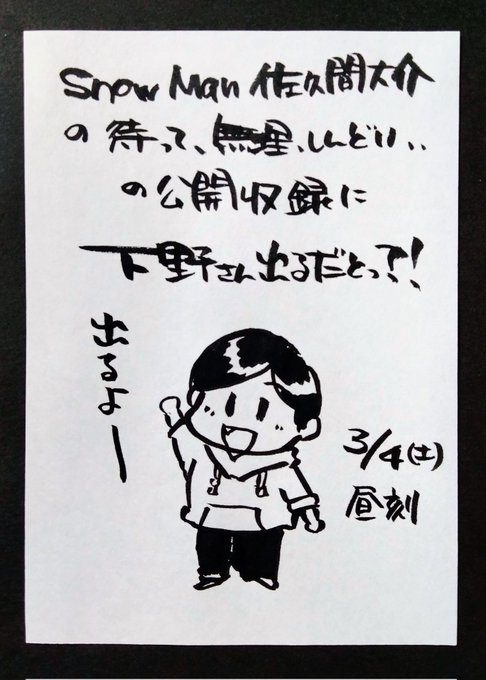 Snow Man 佐久間大介
の待って、無理、しんどい、、
の公開収録に
下野さん出るだとっ?!
出るよー
3/4(土)
昼刻